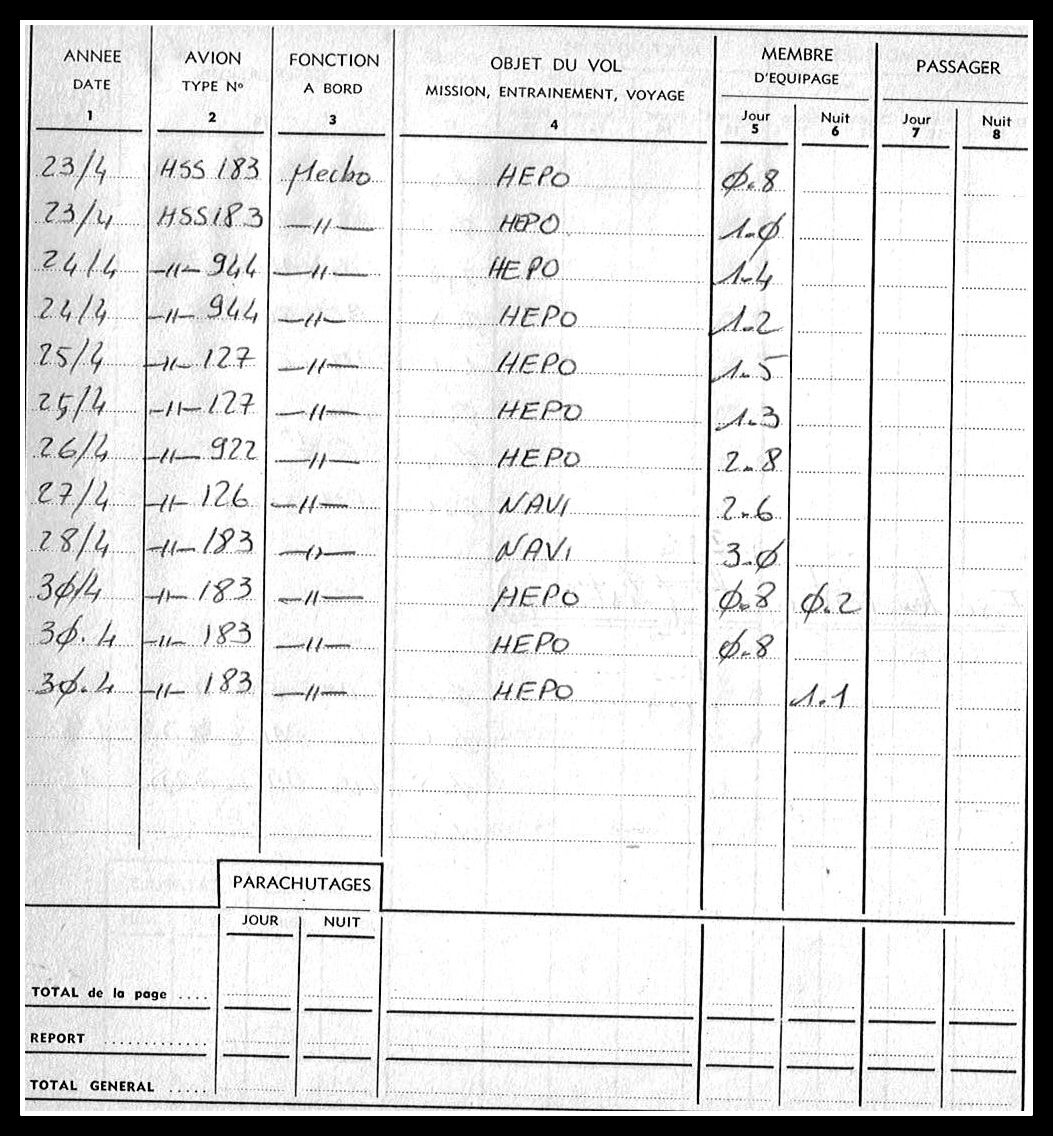 ANNEE AVION FONCTION OBJET DU VOL MEMBRE PASSAGER
DATE TYPE N° A BORD MISSION, ENTRAINEMENT, VOYAGE D'EQUIPAGE
Jour Nuit Jour Nuit
1 2 3 4 5 6 7 8
23/4 HSS 183 Mecbo HEPO Ø.8
23/4 HSS183 —〃— HEPO 1.Ø
24/4 —〃— 944 —〃— HEPO 1.4
24/4 —〃— 944 —〃— HEPO 1.2
25/4 —〃— 127 —〃— HEPO 1.5
25/4 —〃— 127 —〃— HEPO 1.3
26/4 —〃— 922 —〃— HEPO 2.8
27/4 —〃— 126 —〃— NAVI 2.6
28/4 —〃— 183 —〃— NAVI 3.Ø
3Ø/4 —〃— 183 —〃— HEPO Ø.8 Ø.2
3Ø.4 —〃— 183 —〃— HEPO Ø.8
3Ø.4 —〃— 183 —〃— HEPO 1.1
PARACHUTAGES
JOUR NUIT
TOTAL de la page ....
REPORT .............
TOTAL GENERAL .....